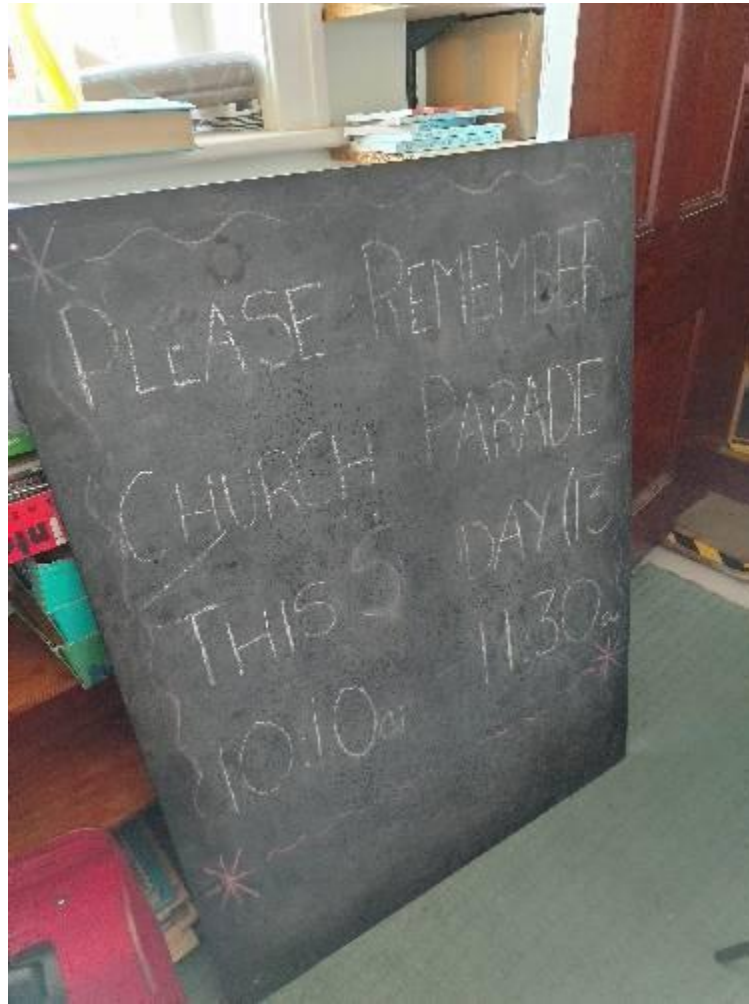 PLEASE REMEMBER
CHURCH PARADE
THIS S DAY (13
10:10am 11:30am